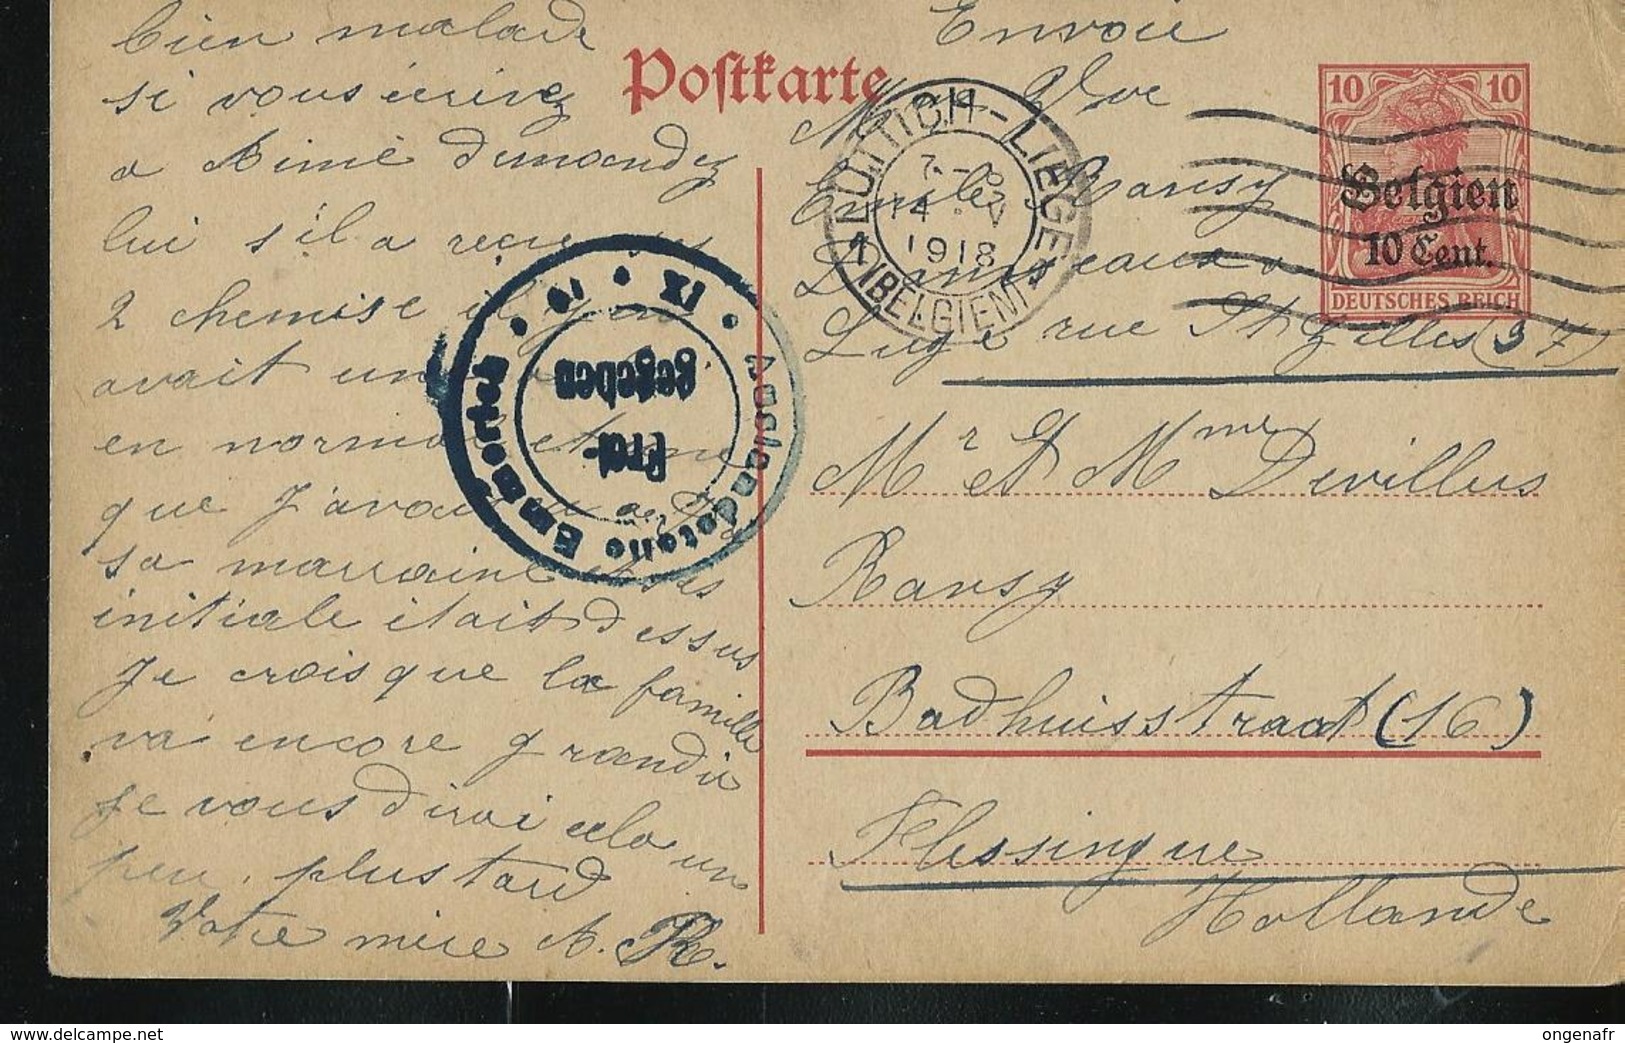 bien malade
si vous écrivez
a Aimé demandez
lui s'il a reçu
2 chemise il y en
avait un
en
que j'avait
sa marraine
initiale était dessus
Je crois que la famille
va encore grandir
je vous dirai cela un
peu plus tard
Votre mère A. R.
Postkarte
Envoie
Mme Vve
Emile Ransy
Damseaux
Liége rue St Gilles (37)
LÜTTICH-LIEGE
7-8
14. V
1918
1 (BELGIEN) 1
10 10
Belgien
10 Cent.
DEUTSCHES REICH
Auslandstelle Emmerich
Frei-
gegeben
Mr Et Mme Devillers
Ransy
Badhuisstraat (16)
Flessingue
Hollande
www.delcampe.net
ongenafr